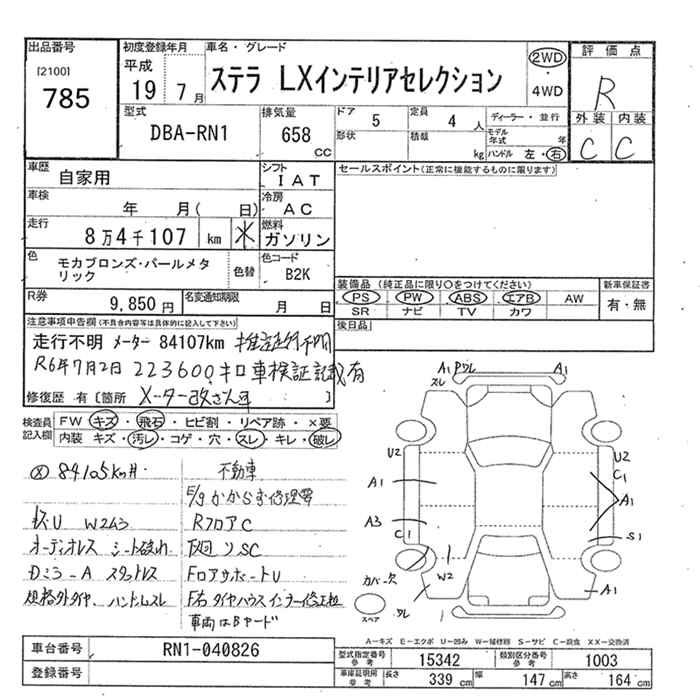 出品番号
[2100]
785
初度登録年月
平成
19 7月
車名・グレード
ステラ LXインテリアセレクション
2WD
・
4WD
評価点
R
外装 内装
C C
型式
DBA-RN1
排気量
658
CC
ドア 5
定員 4 人
形状
積載 kg
ディーラー・並行
モデル年式 年
ハンドル 左・右
車歴
自家用
シフト
IAT
セールスポイント(正常に機能するものに限ります)
車検
年 月( 日)
冷房
AC
走行
8万4千107 km
燃料
ガソリン
色
モカブロンズ・パールメタリック
色替
色コード
B2K
装備品(純正品に限り○をつけてください)
新車保証書
PS PW ABS エアB AW
有・無
SR ナビ TV カワ
R券
9,850円
名変通知期限
月 日
後日品
注意事項申告欄(不具合内容等は具体的に記入して下さい)
走行不明 メーター 84107km 推定走行不明
R6年7月2日 223600キロ車検証記載有
修復歴 有[箇所 メーター改ざん車 ]
検査員記入欄
FW キズ・飛石・ヒビ割・リペア跡・×要
内装 キズ・汚レ・コゲ・穴・スレ・キレ・破レ
84105km
不動車
E/gかからず修理要
W2A3
RフロアC
オーディオレス シート破れ
下廻りSC
Dミラ-A スタットレス
FロアサポートU
規格外タイヤ、ハンドルスレ
F右タイヤハウスインナー修正程
車両はBヤード
A1
スレ
A1
U2
A1
A3
C1
W2
カバー欠
スペア
U2
C1
A1
S1
A1
A-キズ E-エクボ U-凹み W-補修跡 S-サビ C-腐食 XX-交換済
車台番号
RN1-040826
登録番号
型式指定番号
参考
15342
類別区分番号
参考
1003
車庫証明用
参考
長さ
339 cm
幅
147 cm
高さ
164 cm